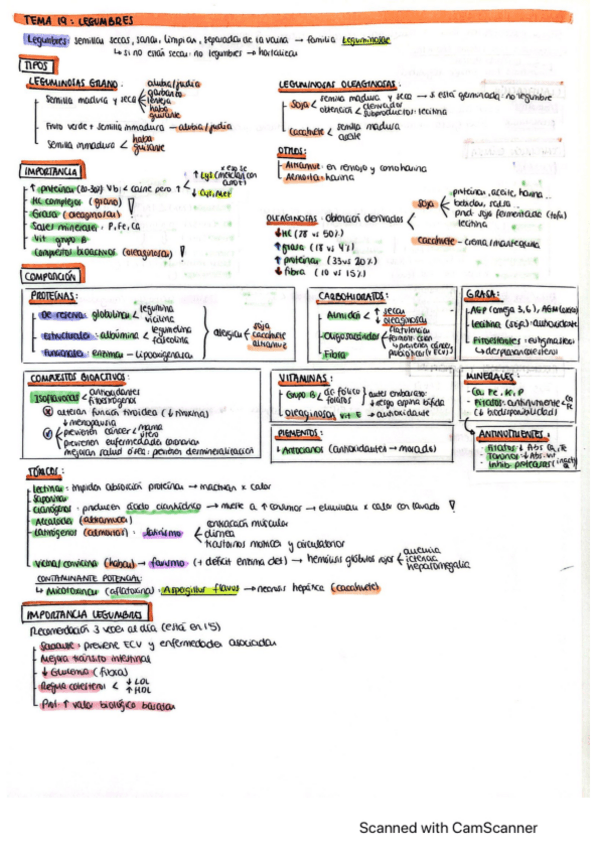 TEMA 19: LEGUMBRES
Legumbres: semillas secas, sanas, limpias, separadas de la vaina → familia Leguminosae
↳ si no están secas: no legumbres → hortalizas
TIPOS
LEGUMINOSAS GRANO:
Semilla madura y seca < alubia/judia
garbanzo
lenteja
haba
guisante
Fruto verde + semilla inmadura — alubia/judia
Semilla inmadura < haba
guisante
LEGUMINOSAS OLEAGINOSAS:
Soja < semilla madura y seca → si está germinada: no legumbre
obtención < derivados
subproductos: lecitina
Cacahuete < semilla madura
aceite
OTROS:
Altramuz: en remojo y como harina
Almorta: harina
IMPORTANCIA
↑ proteínas (20-30%) Vb: < carne pero ↑ < ↑ Lys
↓ Cys, Met
HC complejos (grano)
Grasa (oleaginosas)
Sales minerales: P, Fe, Ca
Vit grupo B
Compuestos bioactivos (oleaginosas)
OLEAGINOSAS: obtención derivados <
Soja < proteínas, aceite, harina...
bebidas, salsa...
prod. soja fermentada (tofu)
lecitina
Cacahuete - crema/mantequilla
↓ HC (28 vs 50%)
↑ grasa (18 vs 4%)
↑ proteínas (33 vs 20%)
↓ fibra (10 vs 15%)
COMPOSICIÓN
PROTEÍNAS:
De reserva: globulina < legumina
vicilina
estructurales: albúmina < legumelina
faseolina
funcionales: enzimas - lipooxigenasa
alergias < soja
cacahuete
altramuz
CARBOHIDRATOS:
Almidón < ↑ secas
↓ oleaginosas
Oligosacáridos < flatulencias
Fibra
GRASA:
AGP (omega 3,6), AGM
lecitina (soja): antioxidante
Fitoesteroles:
COMPUESTOS BIOACTIVOS:
Isoflavonas < antioxidantes
fitoestrógenos
alteran función tiroidea (↓ tiroxina)
↓ menopausia
previenen cáncer < mama
útero
previenen enfermedades coronarias
mejoran salud ósea: previenen desmineralización
VITAMINAS:
Grupo B < ác. fólico
folatos } antes embarazo:
↓ riesgo espina bífida
OLEAGINOSAS: vit E → antioxidante
PIGMENTOS:
↳ Antocianos (antioxidantes → morados)
MINERALES:
Ca, Fe, K, P
Fitatos: antinutriente < Ca
Fe
(↓ biodisponibilidad)
ANTINUTRIENTES:
Fitatos: ↓ Abs Ca, Fe
Taninos: ↓ Abs. vit
Inhib. proteasas
TÓXICOS:
Lectinas: impiden absorción proteínas → machan x calor
Saponinas
Cianógenos: producen ácido cianhídrico → muere a ↑ consumo → eliminan x calor con lavado
Alcaloides (altramuces)
Latirógenos (almortas): latirismo < contracción muscular
diarrea
trastornos motrices y circulatorios
Vicina, convicina (habas) → favismo (+ déficit enzima det) → hemólisis glóbulos rojos < anemia
ictericia
hepatomegalia
CONTAMINANTE POTENCIAL:
↳ Micotoxinas (aflatoxina): Aspergillus flavus → necrosis hepática (cacahuete)
IMPORTANCIA LEGUMBRES
Recomendación 3 veces al día (está en 1,5)
Saciante: previene ECV y enfermedades asociadas
Mejora tránsito intestinal
↓ Glucemia (fibra)
Regula colesterol < ↓ LDL
↑ HDL
Prot. ↑ valor biológico baratas
Scanned with CamScanner